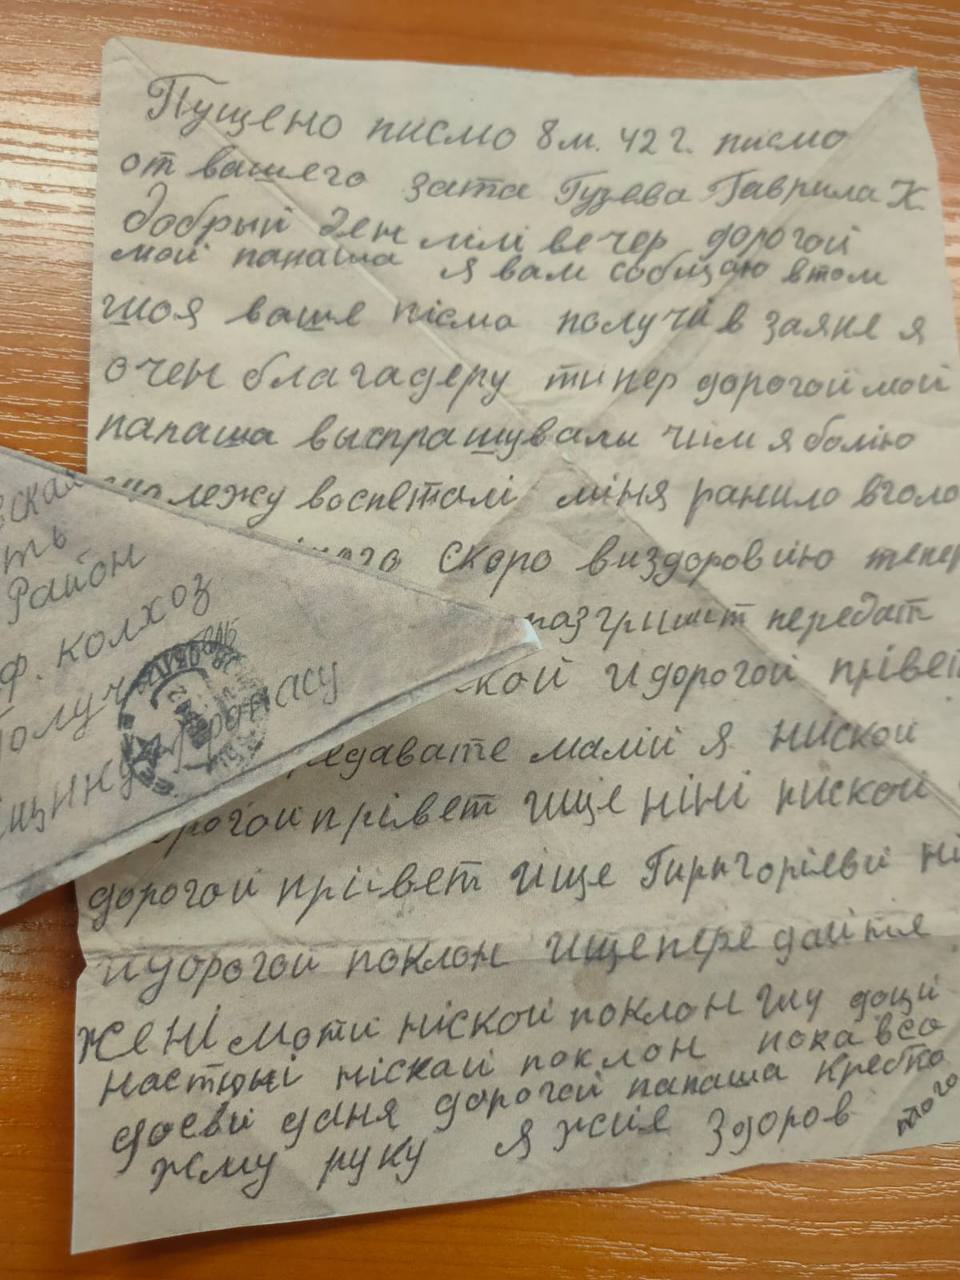 Пущено писмо 8м. 42 г. писмо
от вашего зата Гузева Гаврила К.
добрый ден илі вечер дорогой
мой папаша я вам собщаю втом
шоя ваше пісмо получів заяке я
очен благадеру типер дорогой мой
папаша выспрашували чим я болію
лежу воспеталі міня ранило вголо
скоро виздоровію тепер
передат
кой идорогой прівет
редавате мамій я ниской
дорогой прівет ище ніні ниской
дорогой прівет ище Гиригоріеви ні
идорогой поклон ищепередайтя
жені моти ніской поклон иму доци
настюні ніскай поклон пока всо
досви даня дорогой папаша крепко
жму руку я жив здоров
того
ская
ть
Район
ф. колхоз
Получатель